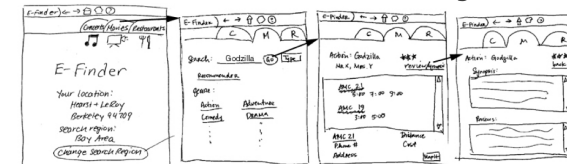 E-Finder
Concerts/Movies/Restaurants
E-Finder
Your location:
Hearst + LeRoy
Berkeley 94709
search region:
Bay Area
Change Search Region
E-Finder
C M R
Search: Godzilla Go Type
Recommended
genre:
Action Adventure
Comedy DRAMA
E-Finder
C M R
Action: Godzilla ***
review/synop
AMC 21
5:00 7:00 9:00
AMC 19
3:00 5:00
AMC 21 Distance
Phone # Cost
Address MapIt
E-Finder
C M R
Action: Godzilla ***
back
Synopsis:
Review: